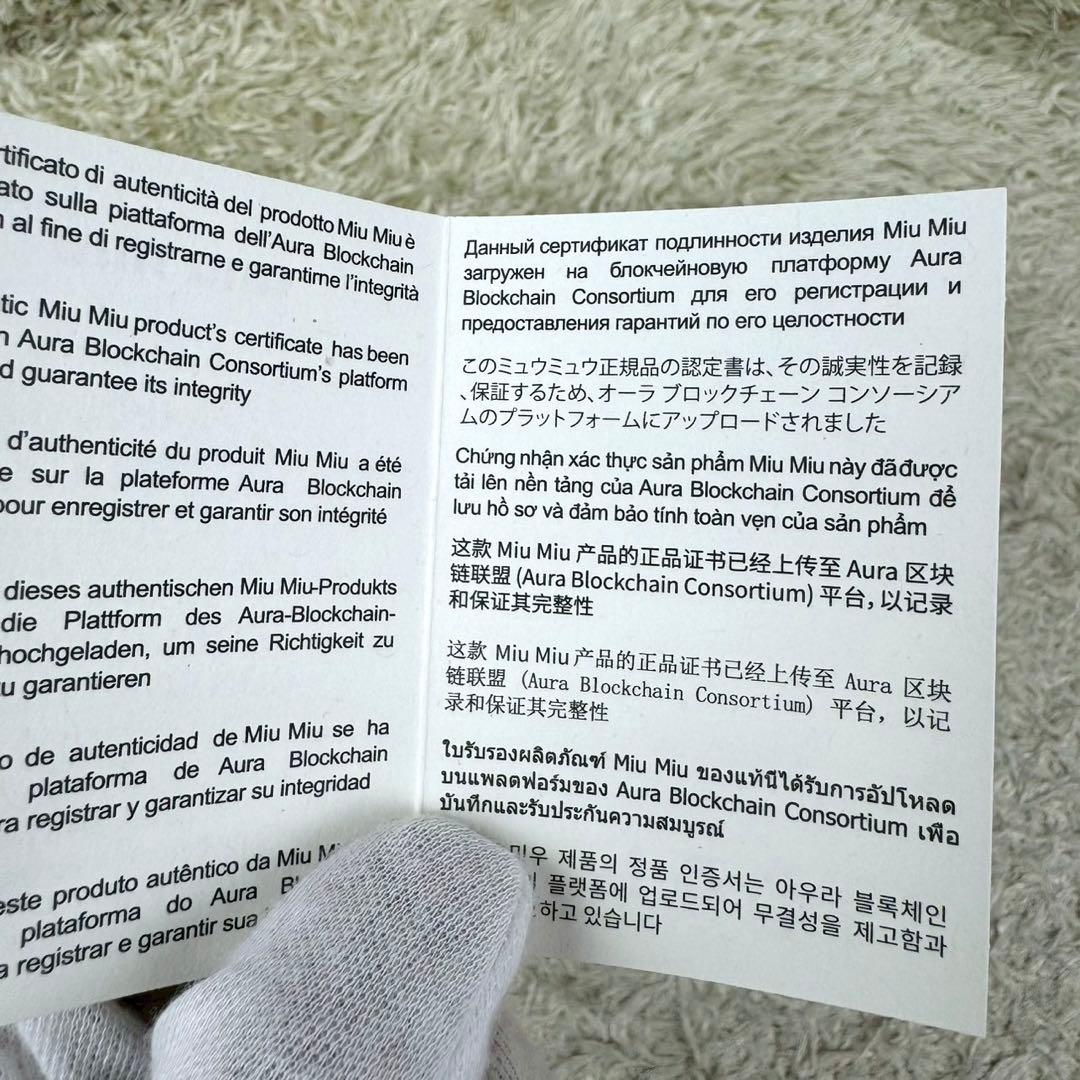 di autenticità del prodotto Miu Miu è
sulla piattaforma dell'Aura Blockchain
al fine di registrarne e garantirne l'integrità
Miu Miu product's certificate has been
Aura Blockchain Consortium's platform
guarantee its integrity
d'authenticité du produit Miu Miu a été
sur la plateforme Aura Blockchain
pour enregistrer et garantir son intégrité
dieses authentischen Miu Miu-Produkts
die Plattform des Aura-Blockchain-
hochgeladen, um seine Richtigkeit zu
garantieren
de autenticidad de Miu Miu se ha
plataforma de Aura Blockchain
registrar y garantizar su integridad
este produto autêntico da Miu
plataforma do Aura
registrar e garantir sua
Данный сертификат подлинности изделия Miu Miu
загружен на блокчейновую платформу Aura
Blockchain Consortium для его регистрации и
предоставления гарантий по его целостности
このミュウミュウ正規品の認定書は、その誠実性を記録
、保証するため、オーラ ブロックチェーン コンソーシア
ムのプラットフォームにアップロードされました
Chứng nhận xác thực sản phẩm Miu Miu này đã được
tải lên nền tảng của Aura Blockchain Consortium để
lưu hồ sơ và đảm bảo tính toàn vẹn của sản phẩm
这款 Miu Miu 产品的正品证书已经上传至 Aura 区块
链联盟 (Aura Blockchain Consortium) 平台，以记录
和保证其完整性
这款 Miu Miu 产品的正品证书已经上传至 Aura 区块
链联盟 (Aura Blockchain Consortium) 平台，以记
录和保证其完整性
ใบรับรองผลิตภัณฑ์ Miu Miu ของแท้นี้ได้รับการอัปโหลด
บนแพลตฟอร์มของ Aura Blockchain Consortium เพื่อ
บันทึกและรับประกันความสมบูรณ์
제품의 정품 인증서는 아우라 블록체인
플랫폼에 업로드되어 무결성을 제고함과
하고 있습니다